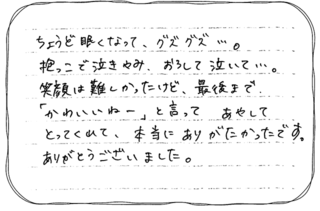 ちょうど眠くなって、グズグズ…。
抱っこで泣きやみ、おろして泣いて…。
笑顔は難しかったけど、最後まで
「かわいいねー」と言って あやして
とってくれて、本当に ありがたかったです。
ありがとうございました。